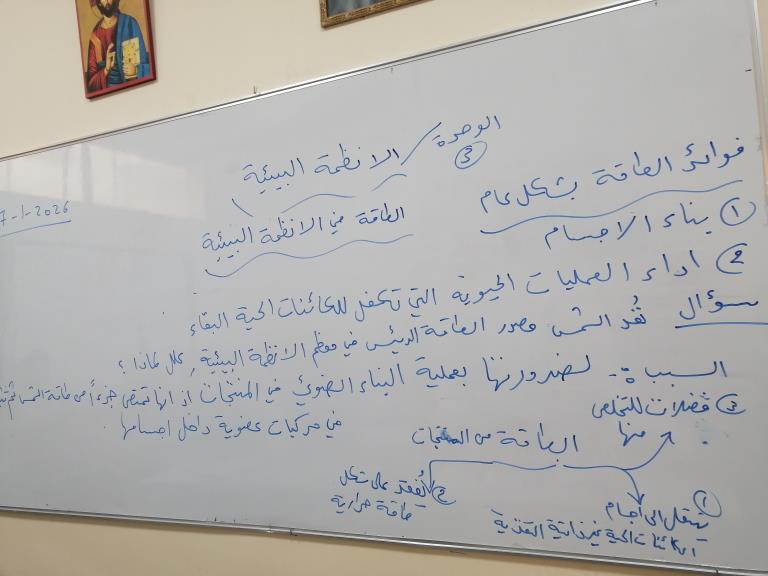 الوحدة ③ / الانظمة البيئية
7-1-2026
الطاقة في الانظمة البيئية
فوائد الطاقة بشكل عام
① بناء الاجسام
② اداء العمليات الحيوية التي تكفل للكائنات الحية البقاء
سؤال تُعد الشمس مصدر الطاقة الرئيس في معظم الانظمة البيئية، علل لماذا؟
السبب :- لضرورتها بعملية البناء الضوئي في المنتجات اذ انها تمتص جزءاً من طاقة الشمس ثم
في مركبات عضوية داخل اجسامها.
الطاقة من المنتجات
③ فضلات للتخلص
منها
② يُفقد على شكل
طاقة حرارية
① ينتقل الى اجسام
الكائنات الحية غير ذاتية التغذية